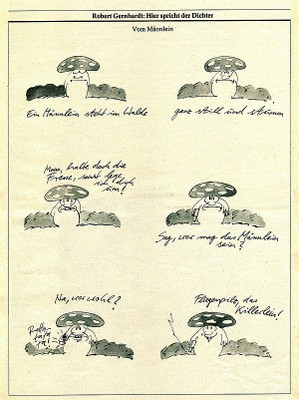 Robert Gernhardt: Hier spricht der Dichter
Vom Männlein
Ein Männlein steht im Walde
ganz still und stumm
Mann, halte doch die
Fresse, sonst lege
ich dich
um!
Sag, wer mag das Männlein
sein?
Na, wer wohl?
Fliegenpilz, das
Killerlein!